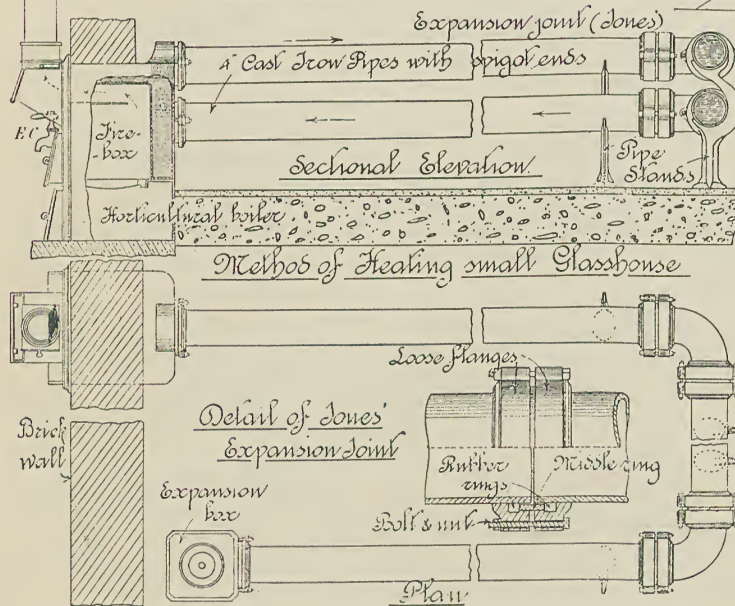 Expansion joint (Jones')
4" Cast Iron Pipes with spigot ends
E.C.
Fire-
box
Sectional Elevation.
Pipe
Stands
Horticultural boiler
Method of Heating small Glasshouse
Loose flanges
Detail of Jones'
Expansion Joint
Brick
wall
Rubber
rings
Middle ring
Expansion
box
Bolt & nut
Plan